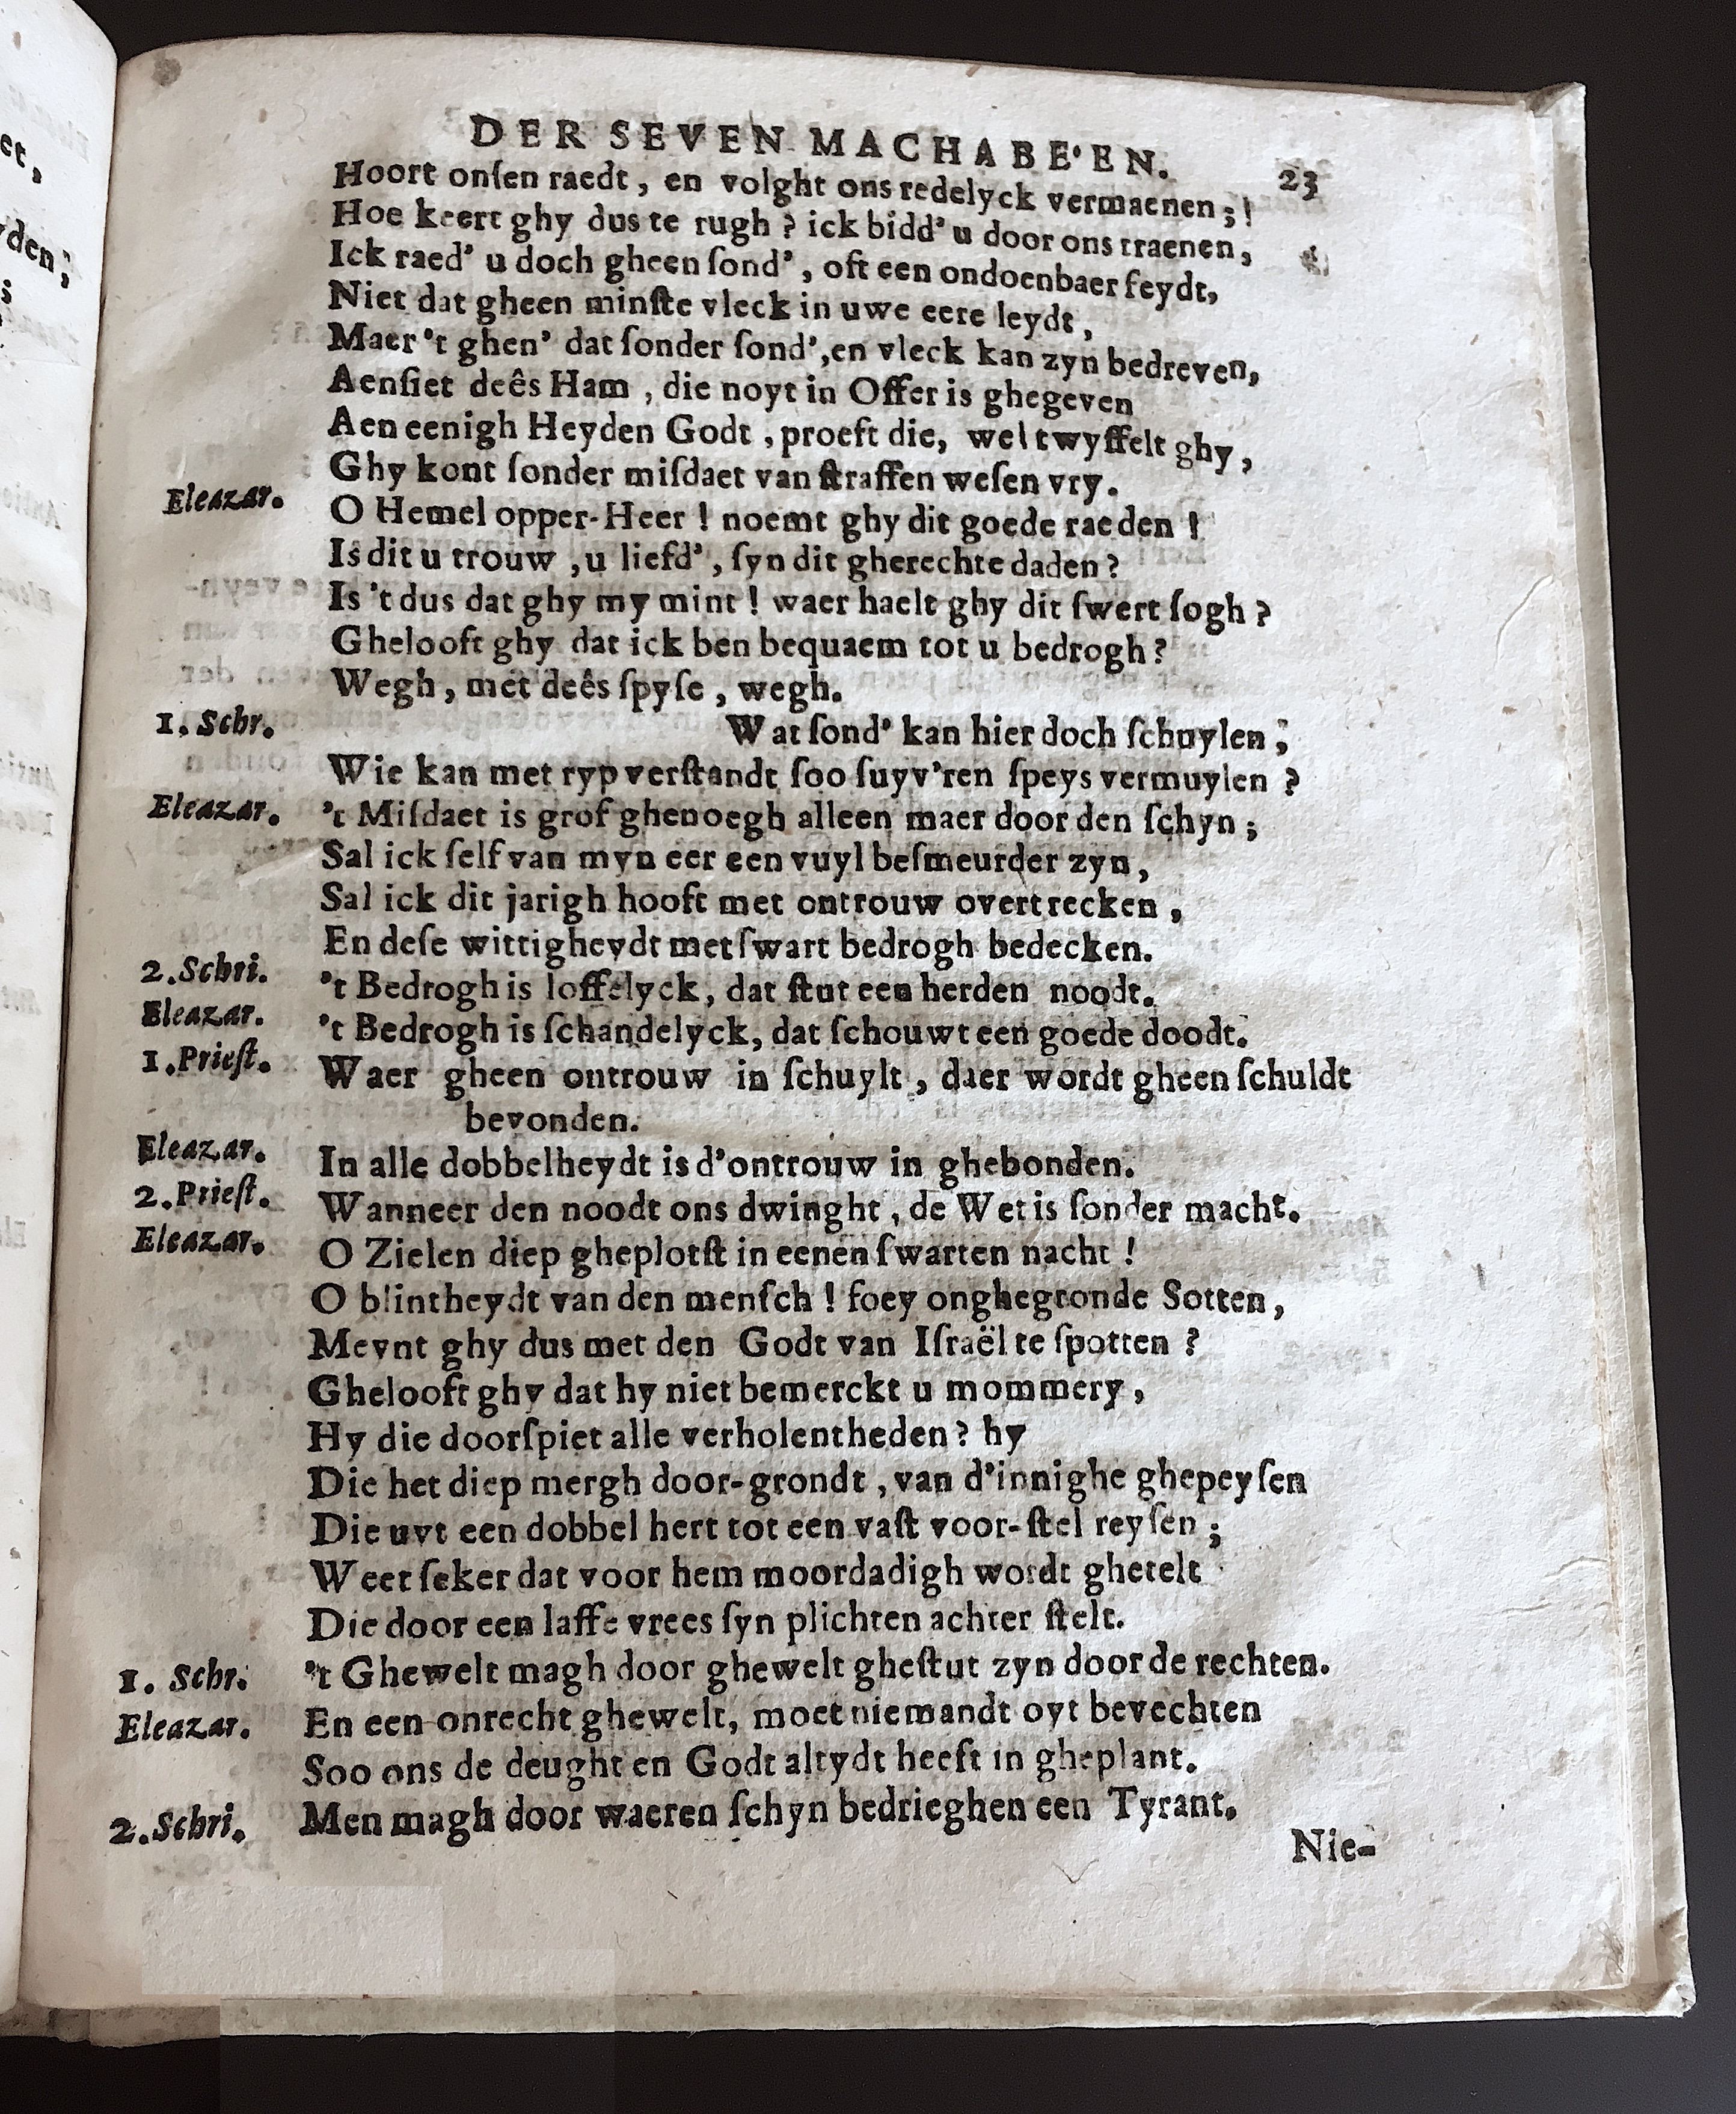 et,
yden;
s
DER SEVEN MACHABE'EN. 23
Hoort onſen raedt, en volght ons redelyck vermaenen;!
Hoe keert ghy dus te rugh? ick bidd' u door ons traenen,
Ick raed' u doch gheen ſond', oft een ondoenbaer feydt,
Niet dat gheen minſte vleck in uwe eere leydt,
Maer 't ghen' dat ſonder ſond', en vleck kan zyn bedreven,
Aenſiet deês Ham, die noyt in Offer is ghegeven
Aen eenigh Heyden Godt, proeft die, wel twyffelt ghy,
Ghy kont ſonder miſdaet van ſtraffen weſen vry.
Eleazar. O Hemel opper-Heer! noemt ghy dit goede raeden!
Is dit u trouw, u liefd', ſyn dit gherechte daden?
Is 't dus dat ghy my mint! waer haelt ghy dit ſwert ſogh?
Ghelooft ghy dat ick ben bequaem tot u bedrogh?
Wegh, met deês ſpyſe, wegh.
1. Schr. Wat ſond' kan hier doch ſchuylen;
Wie kan met ryp verſtandt ſoo ſuyv'ren ſpeys vermuylen?
Eleazar. 't Miſdaet is grof ghenoegh alleen maer door den ſchyn;
Sal ick ſelf van myn eer een vuyl beſmeurder zyn,
Sal ick dit jarigh hooft met ontrouw overtrecken,
En deſe wittigheydt met ſwart bedrogh bedecken.
2. Schri. 't Bedrogh is loffelyck, dat ſtut een herden noodt.
Eleazar. 't Bedrogh is ſchandelyck, dat ſchouwt een goede doodt.
1. Prieſt. Waer gheen ontrouw in ſchuylt, daer wordt gheen ſchuldt
bevonden.
Eleazar. In alle dobbelheydt is d'ontrouw in ghebonden.
2. Prieſt. Wanneer den noodt ons dwinght, de Wet is ſonder macht.
Eleazar. O Zielen diep gheplotſt in eenen ſwarten nacht!
O blintheydt van den menſch! foey onghegronde Sotten,
Meynt ghy dus met den Godt van Iſraël te ſpotten?
Ghelooft ghy dat hy niet bemerckt u mommery,
Hy die doorſpiet alle verholentheden? hy
Die het diep mergh door-grondt, van d'innighe ghepeyſen
Die uyt een dobbel hert tot een vaſt voor-ſtel reyſen;
Weet ſeker dat voor hem moordadigh wordt ghetelt
Die door een laffe vrees ſyn plichten achter ſtelt.
1. Schr. 't Ghewelt magh door ghewelt gheſtut zyn door de rechten.
Eleazar. En een onrecht ghewelt, moet niemandt oyt bevechten
Soo ons de deught en Godt altydt heeft in gheplant.
2. Schri. Men magh door waeren ſchyn bedrieghen een Tyrant.
Nie-